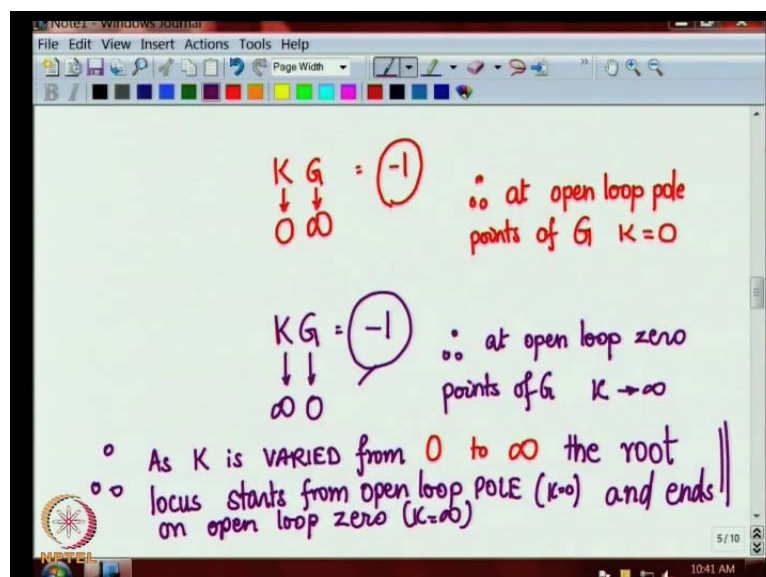 Note1 - Windows Journal
File Edit View Insert Actions Tools Help
Page Width
B I
K G = -1
↓ ↓
0 ∞
∴ at open loop pole
points of G K=0
KG = -1
↓ ↓
∞ 0
∴ at open loop zero
points of G K→∞
∴ As K is VARIED from 0 to ∞ the root
locus starts from open loop POLE (K=0) and ends
on open loop zero (K=∞)
5/10
NPTEL
10:41 AM